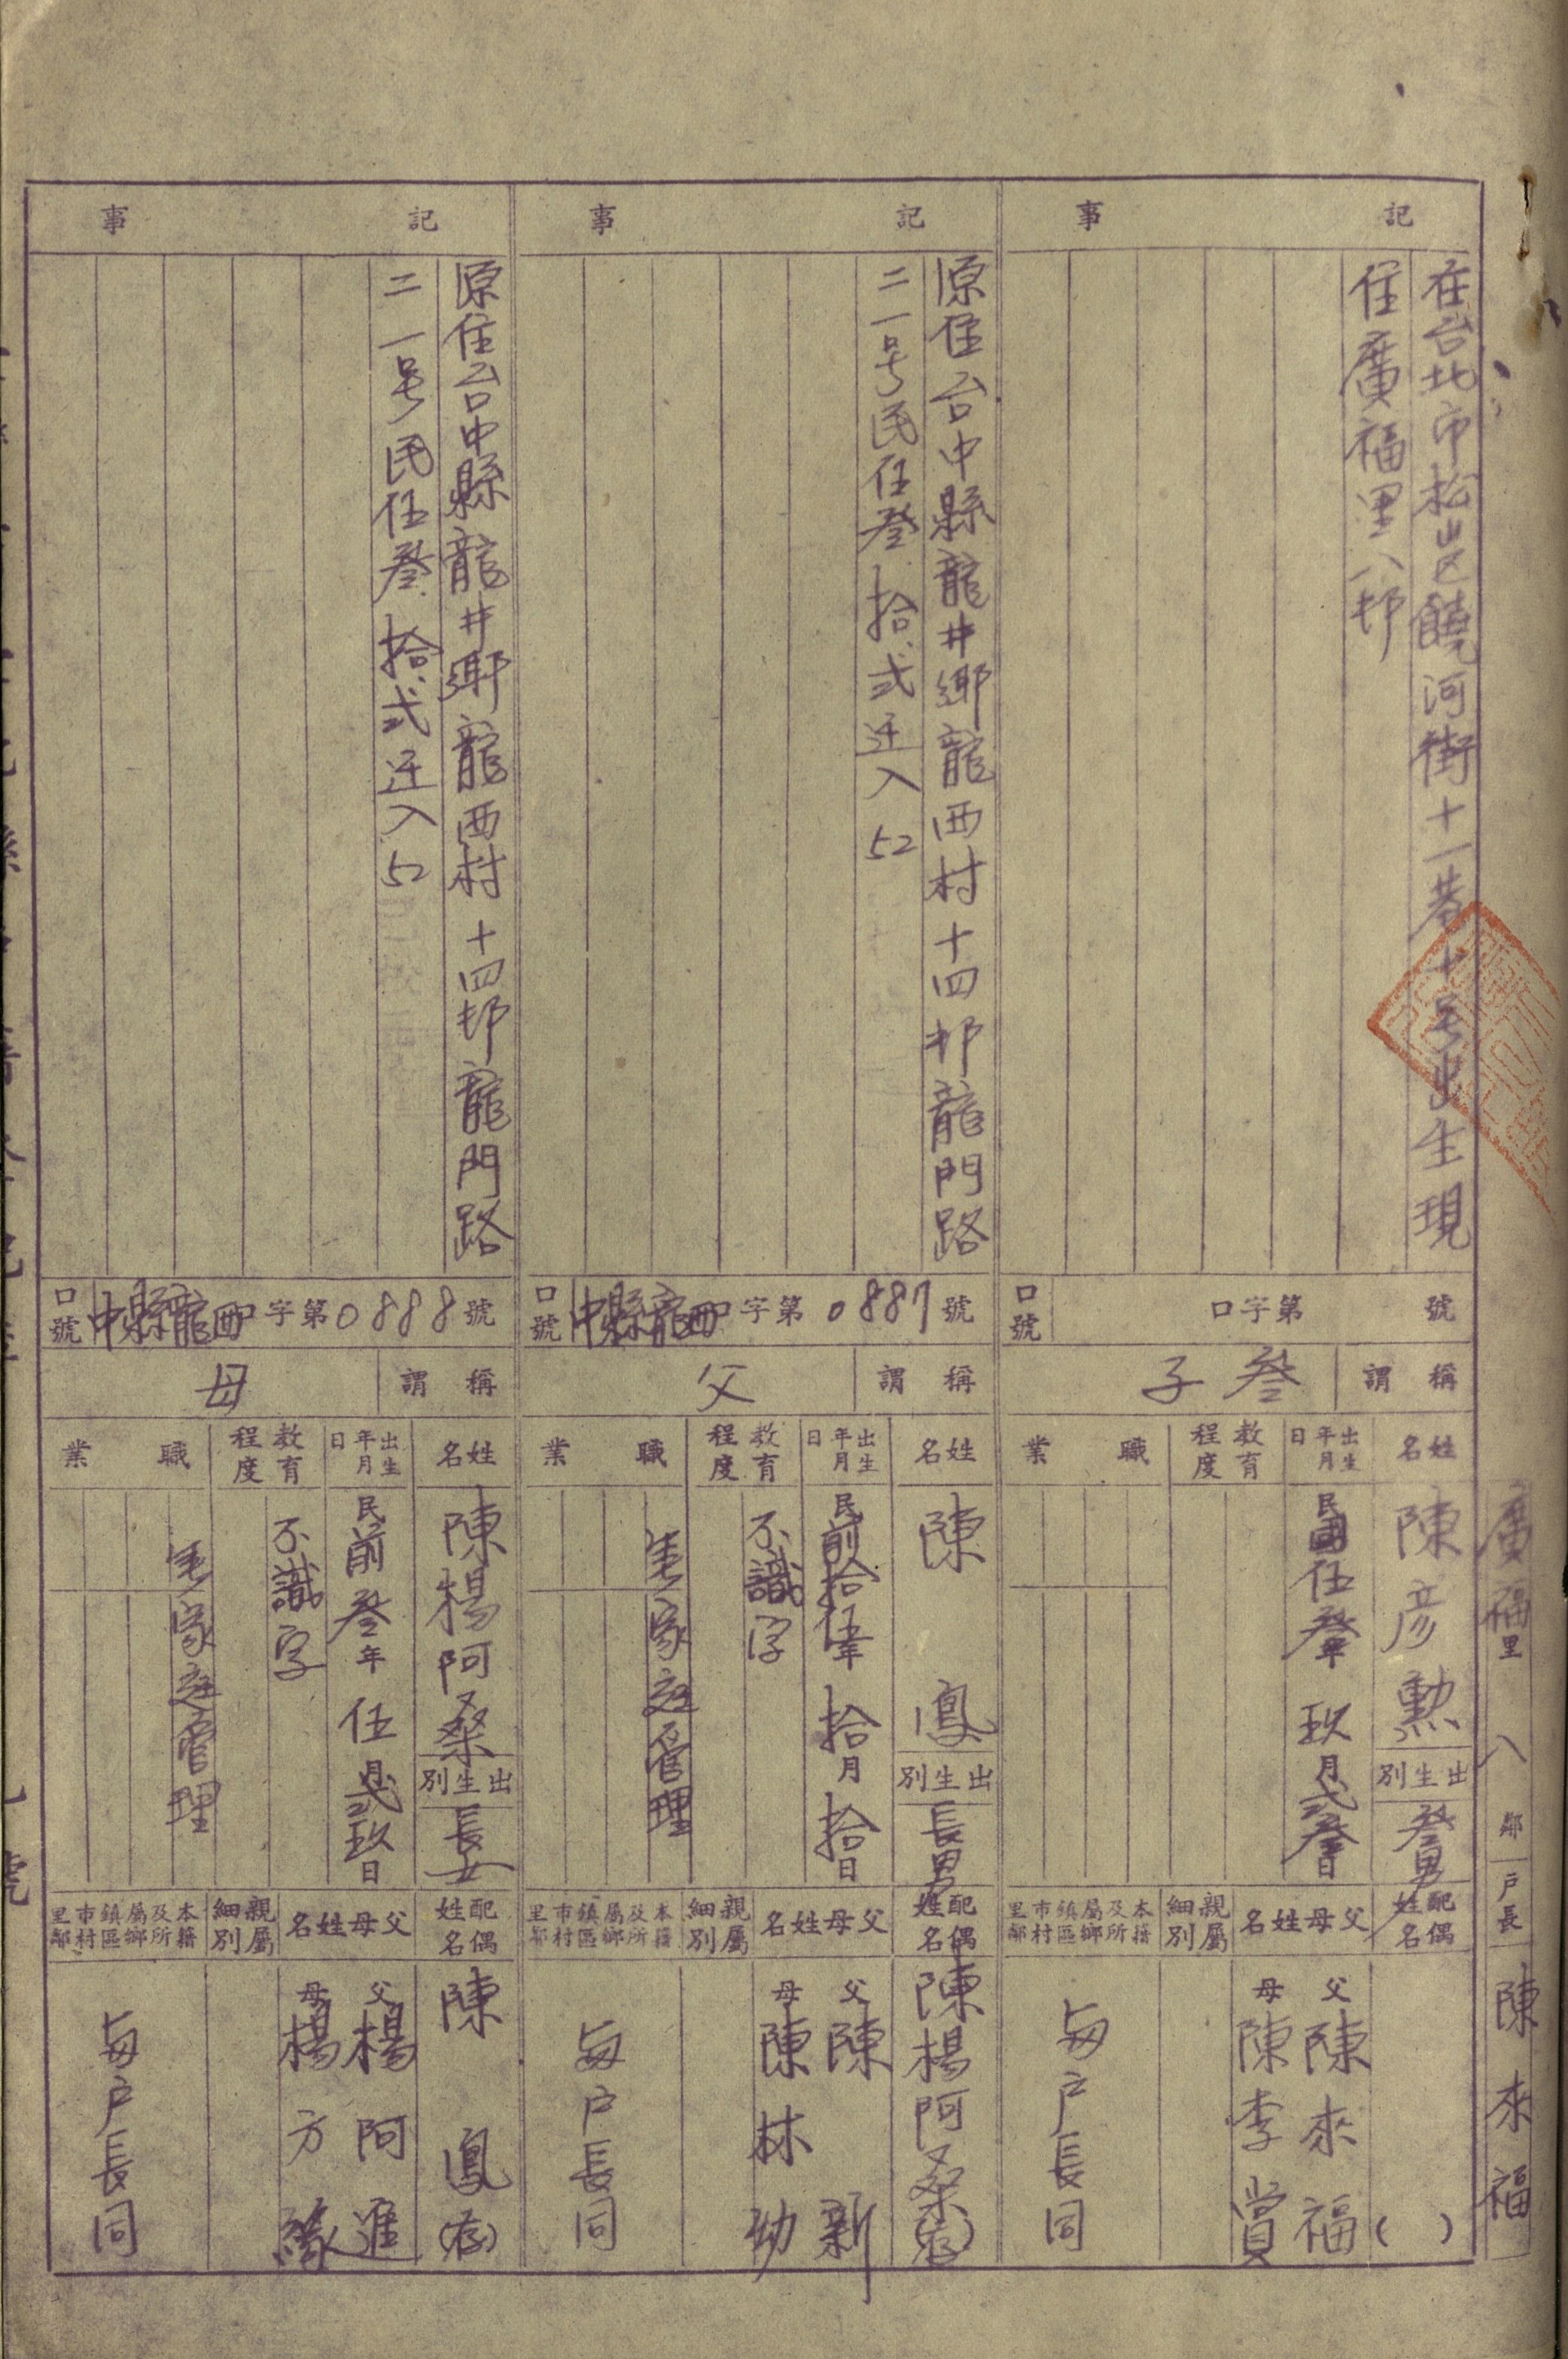 廣福里 八 鄰 戶長 陳來福
記事
在台北市松山区饒河街十一巷十号出生現
住廣福里八邻
口號 口字第 號
稱謂 叁子
姓名 陳彥勲
出生別 叁男
出生年月日 民國伍叁年玖月弍叁日
教育程度
職業
配偶姓名 ( )
父母姓名 父 陳來福
母 陳李賞
親屬細別
本籍及所屬鄉鎮區市村里鄰 与户長同
記事
原住台中縣龍井鄉龍西村十四邻龍門路
二一号民伍叁.拾.弍迁入52
口號 中縣龍西口字第0887號
稱謂 父
姓名 陳鳳
出生別 長男
出生年月日 民前拾伍年拾月拾日
教育程度 不識字
職業 家庭管理
配偶姓名 陳楊阿桑(存)
父母姓名 父 陳新
母 陳林幼
親屬細別
本籍及所屬鄉鎮區市村里鄰 与户長同
記事
原住台中縣龍井鄉龍西村十四邻龍門路
二一号民伍叁.拾.弍迁入52
口號 中縣龍西口字第0888號
稱謂 母
姓名 陳楊阿桑
出生別 長女
出生年月日 民前叁年伍月弍玖日
教育程度 不識字
職業 家庭管理
配偶姓名 陳鳳(存)
父母姓名 父 楊阿進
母 楊方緣
親屬細別
本籍及所屬鄉鎮區市村里鄰 与户長同